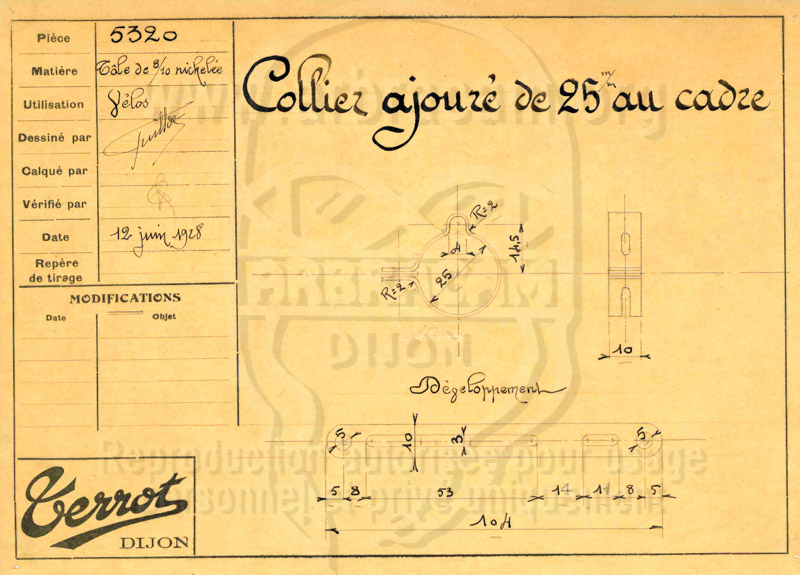 Pièce 5320
Matière Tôle de 8/10 nickelée
Utilisation Vélos
Dessiné par
Calqué par
Vérifié par
Date 12 juin 1928
Repère
de tirage
MODIFICATIONS
Date Objet
Collier ajouré de 25 m/m au cadre
R=2
4 1
14.5
25
R=2
10
Développement
5 10 3 5
5 8 53 14 11 8 5
104
Terrot
DIJON
ARBRACAM
DIJON
Reproduction autorisée pour usage
personnel et privé uniquement